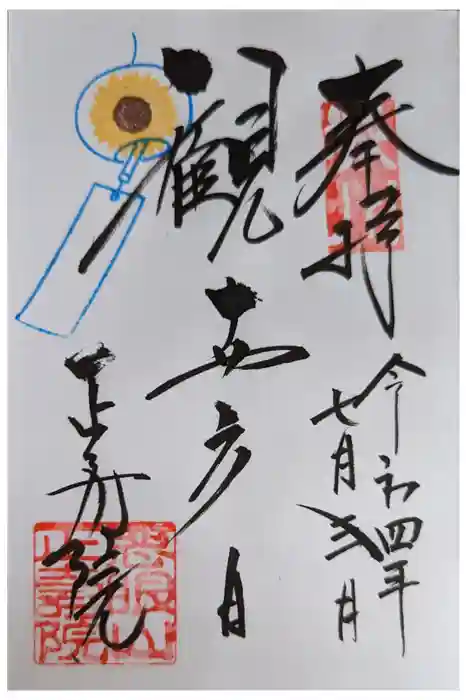 奉拝
令和四年
七月 日
観世音
正寿院